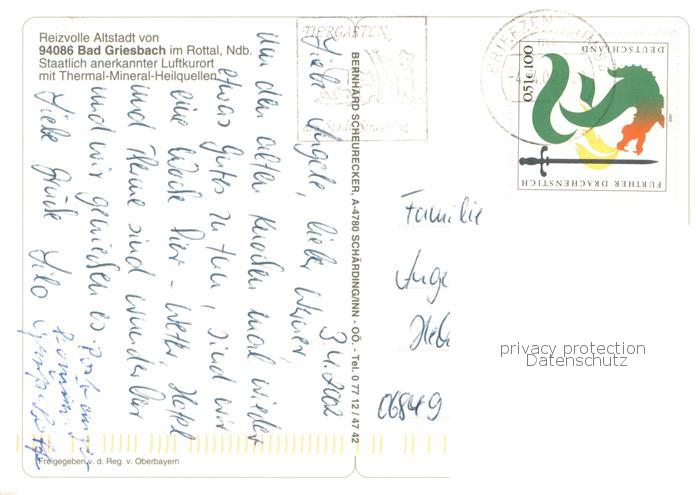 Reizvolle Altstadt von
94086 Bad Griesbach im Rottal, Ndb.
Staatlich anerkannter Luftkurort
mit Thermal-Mineral-Heilquellen
3.4.2002
Liebe Angela, lieber Werner
um den alten Knochen mal wieder
etwas Gutes zu tun, sind wir
eine Woche hier - Wetter, Hotel
und Therme sind wunderbar
und wir genießen es.
Liebe Grüße
Freigegeben v. d. Reg. v. Oberbayern
BERNHARD SCHEURECKER, A-4780 SCHÄRDING/INN - OÖ. - Tel. 0 77 12 / 47 42
TIERGARTEN
der Stadt Straubing
BRIEFZENTRUM
DEUTSCHLAND
0,51€ 100
FURTHER DRACHENSTICH
Familie
Ange
06849
privacy protection
Datenschutz